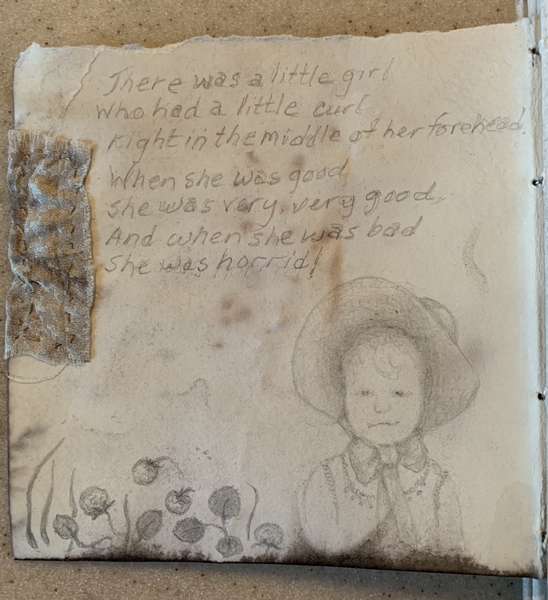 There was a little girl
who had a little curl
Right in the middle of her forehead.
When she was good
she was very, very good,
And when she was bad
she was horrid!